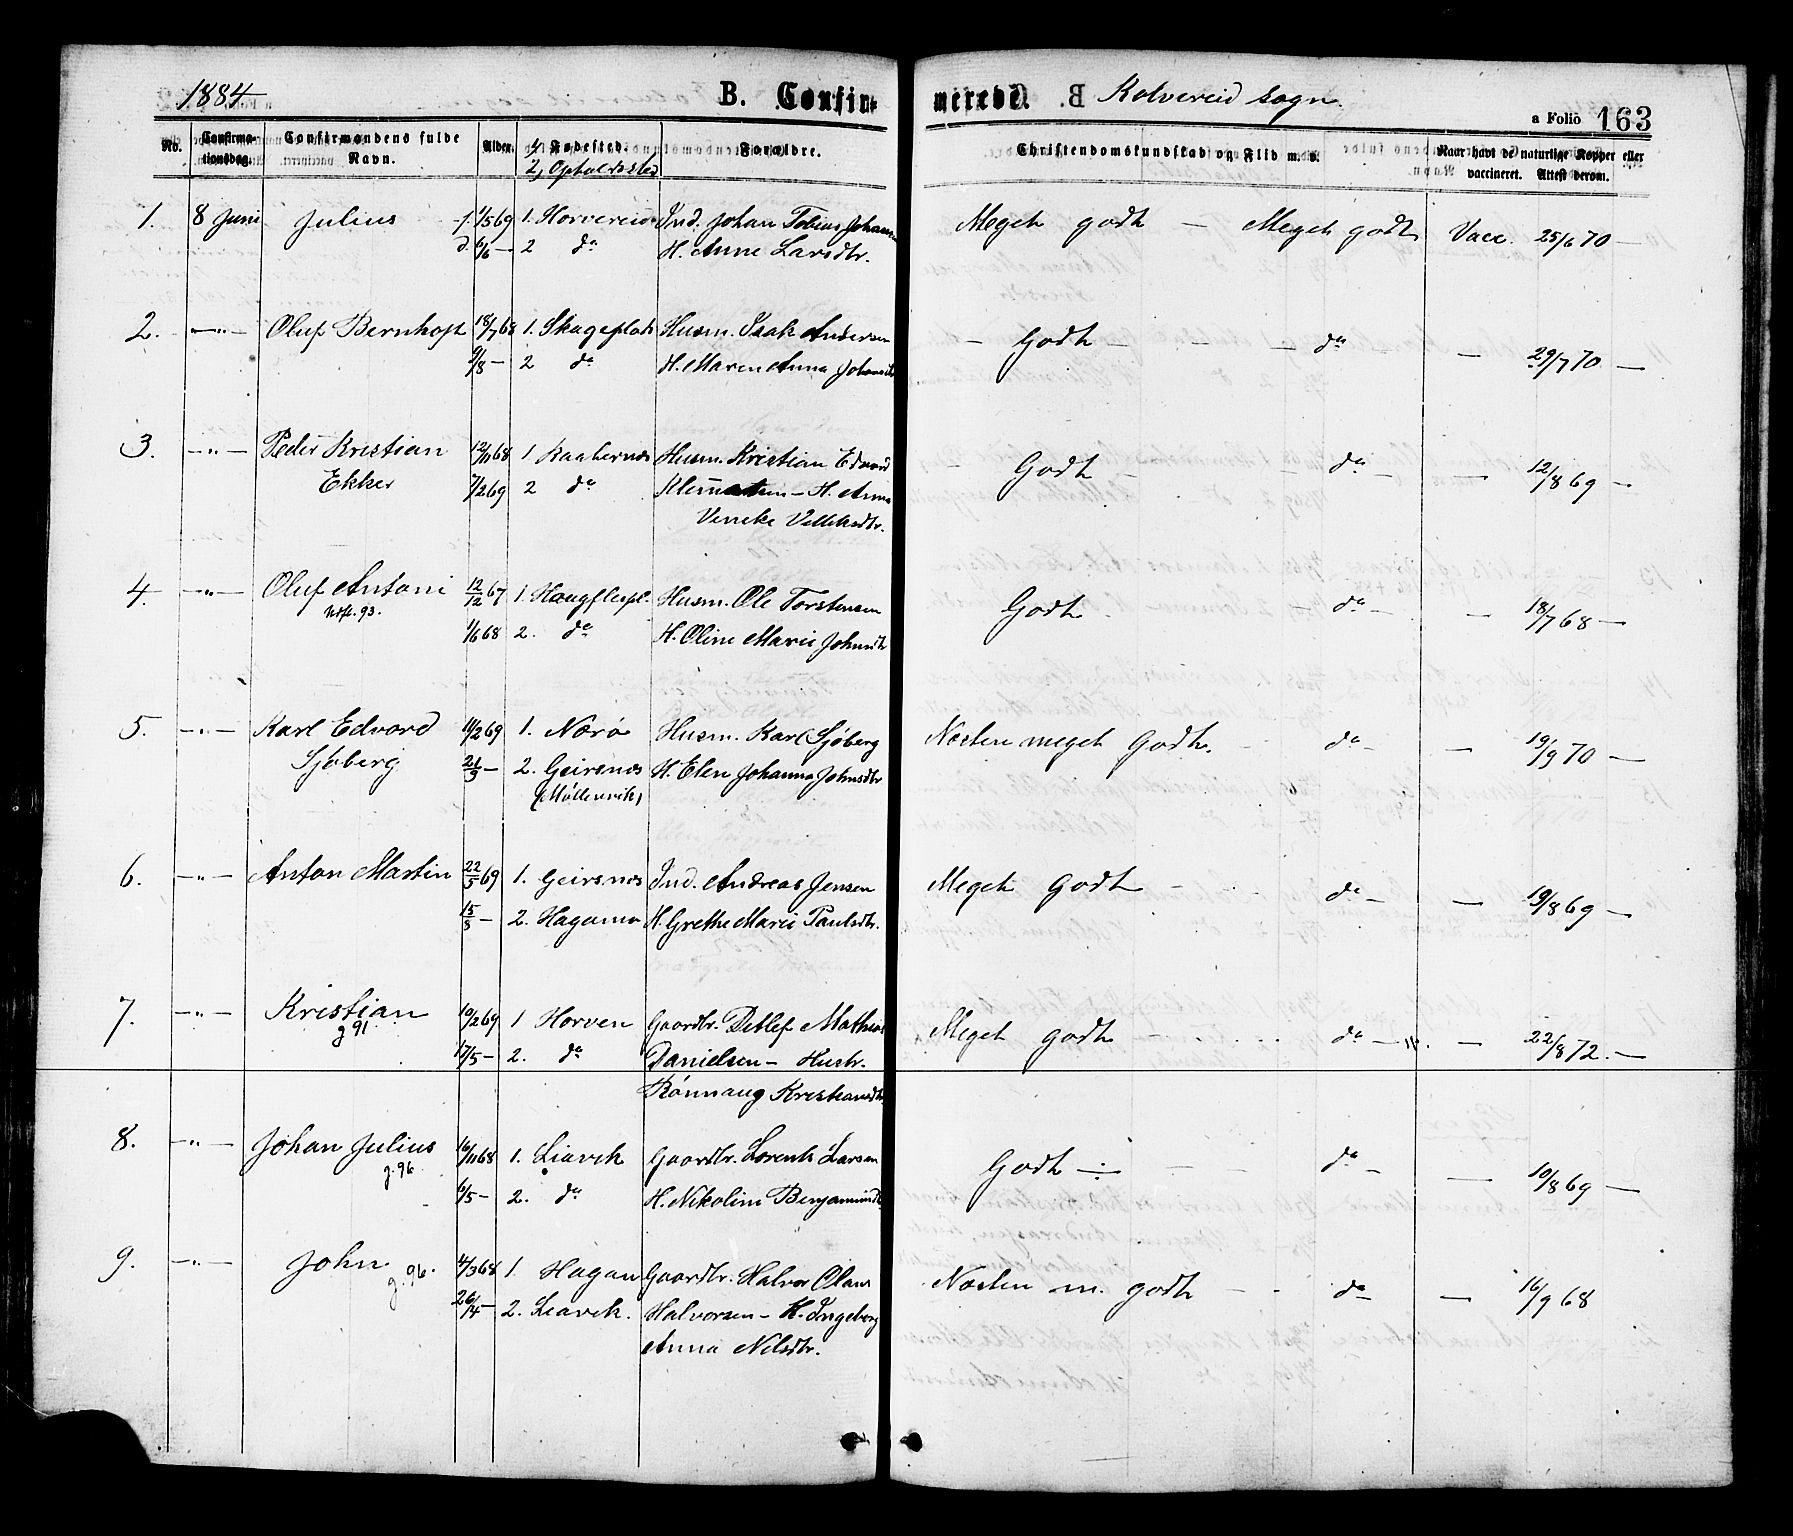 1884 B. Confirmerede. Kolvereid sogn. a Folio 163
No. Confirmationsdag. Confirmandens fulde Navn. Alder. 1, Fødested. 2, Opholdssted Forældre. Christendomskundskab og Flid m. v. Naar havt de naturlige Kopper eller vaccineret. Attest derom.
1. 8 Juni Julius f. 1/5 69 1. Horvereid Ind. Johan Tobias Johans Meget godt — Meget godt Vacc. 25/6 70 —
d. 6/6 — 2 do H. Anne Larsdtr.
2. —"— Oluf Bernhoft 18/7 68 1. Skageplads Husm. Isak Andersen — Godt — — — do — 29/7 70 —
9/8 — 2 do H. Maren Anna Johansd
3. —"— Peder Kristian 12/11 68 1 Kaahernes Husm. Kristian Edvard — Godt — — do — — 12/8 69 —
Ekker 7/2 69 2 do Klematsen — H. Anna
Veneke Velleksdtr.
4. —"— Oluf Antoni 12/12 67 1. Haugflespl. Husm. Ole Torstensen Godt — do — — 18/7 68 —
Utfl. 93. 1/6 68 2. do H. Oline Marie Johnsdtr
5. —"— Karl Edvard 11/2 69 1. Nærø Husm. Karl Sjøberg Næsten meget Godt. — do — — 19/9 70 —
Sjøberg 21/3 — 2. Geirsnes H. Elen Johanna Johnsdtr
(Møllevik)
6. —"— Anton Martin 22/5 69 1. Geirsnes Ind. Andreas Jensen Meget Godt — do — — 19/8 69 —
15/8 — 2. Hagamo H. Grethe Marie Paulsdtr.
7. —"— Kristian 10/2 69 1 Horven Gaardbr. Detlef Mathias Meget godt — do — — 22/8 72. —
g 91 17/5 — 2. do Danielsen — Hustr.
Rønnaug Kristiansdtr
8. —"— Johan Julius 16/11 68 1. Liavik Gaardbr. Lorents Larsen Godt ÷ — — — do — — 10/8 69 —
g. 96 6/5 — 2. do H. Nikoline Benjaminsdtr
9. —"— John 4/3 68 1. Hagan Gaardbr. Halvor Olaus Næsten m. godt — do — 16/9 68
g. 96. 26/4 — 2. Liavik. Halvorsen — H. Ingeborg
Anna Nilsdtr.